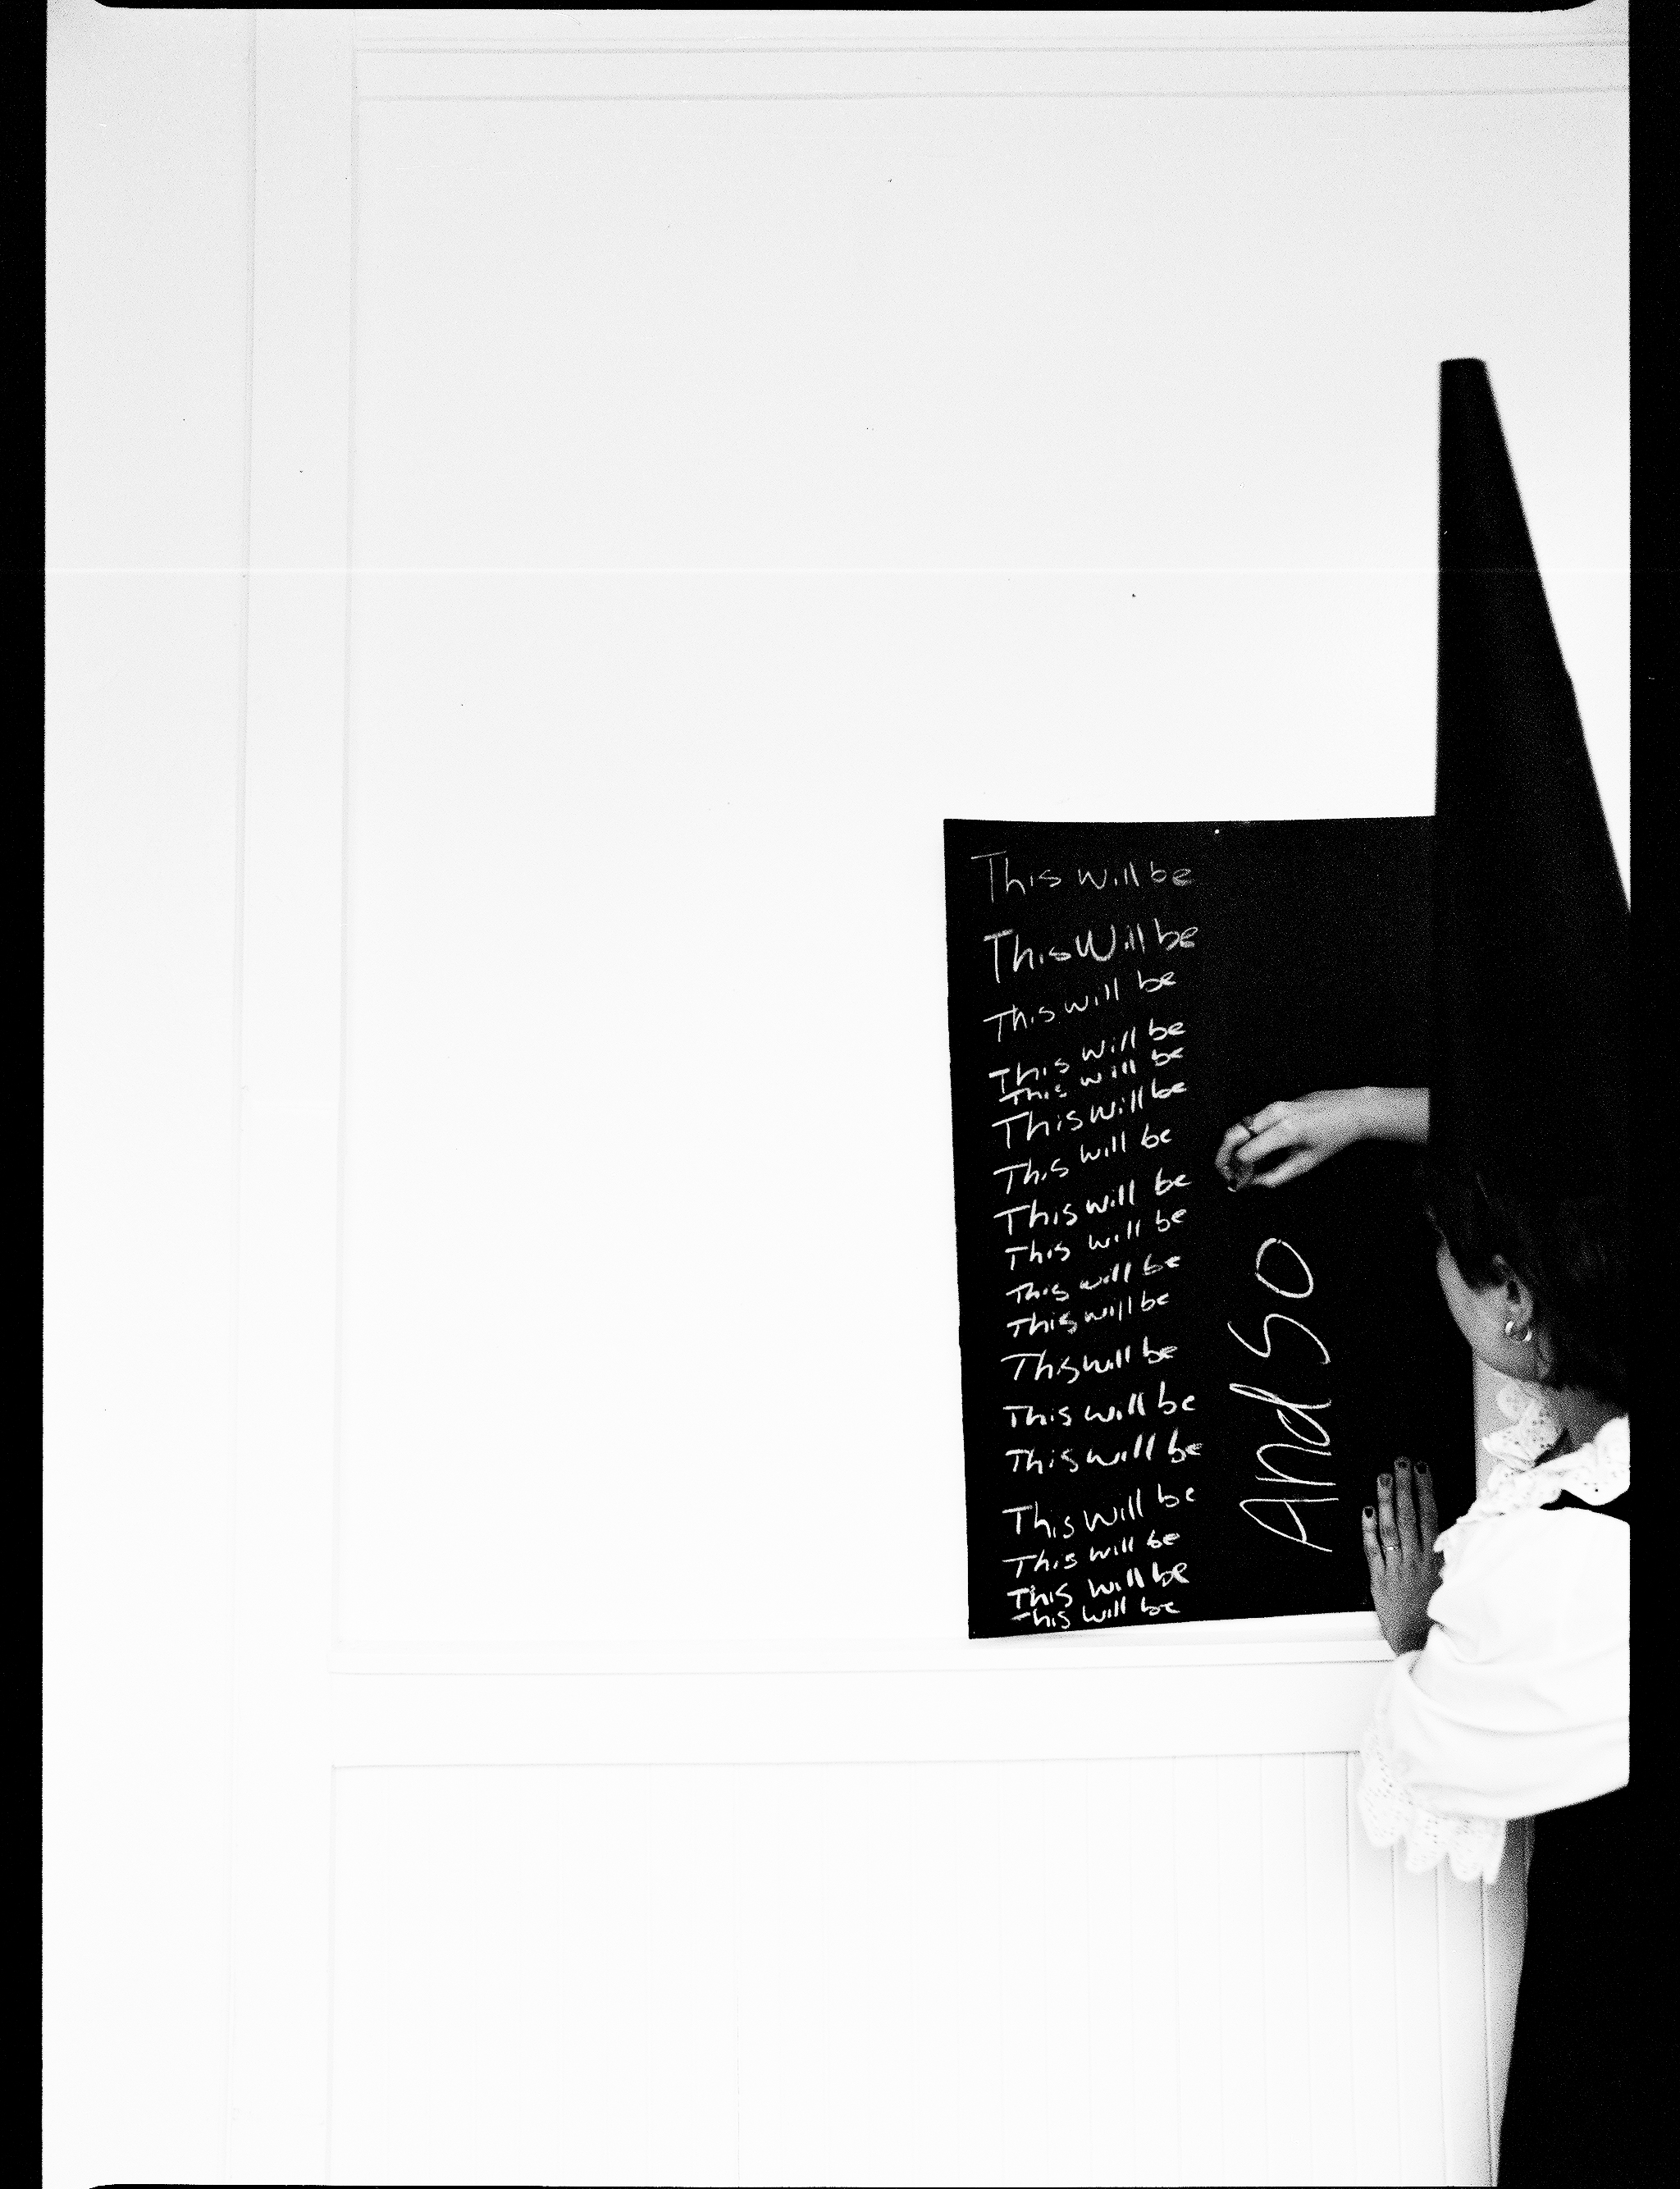 This will be
This Will be
This will be
This will be
This will be
This will be
This will be
This will be
This will be
This will be
This will be
This will be
This will be
This will be
This will be
This will be
This will be
This will be
And So